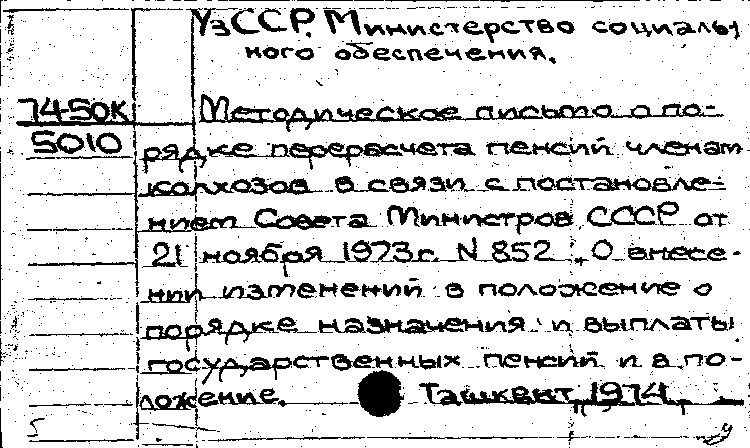 УзССР. Министерство социаль-
ного обеспечения.
74-50К Методическое письмо о по-
5010 рядке перерасчета пенсий членам
колхозов в связи с постановле-
нием Совета Министров СССР от
21 ноября 1973г. N 852 „О внесе-
нии изменений в положение о
порядке назначения и выплаты
государственных пенсий и в по-
ложение. Ташкент, 1974.
5 у